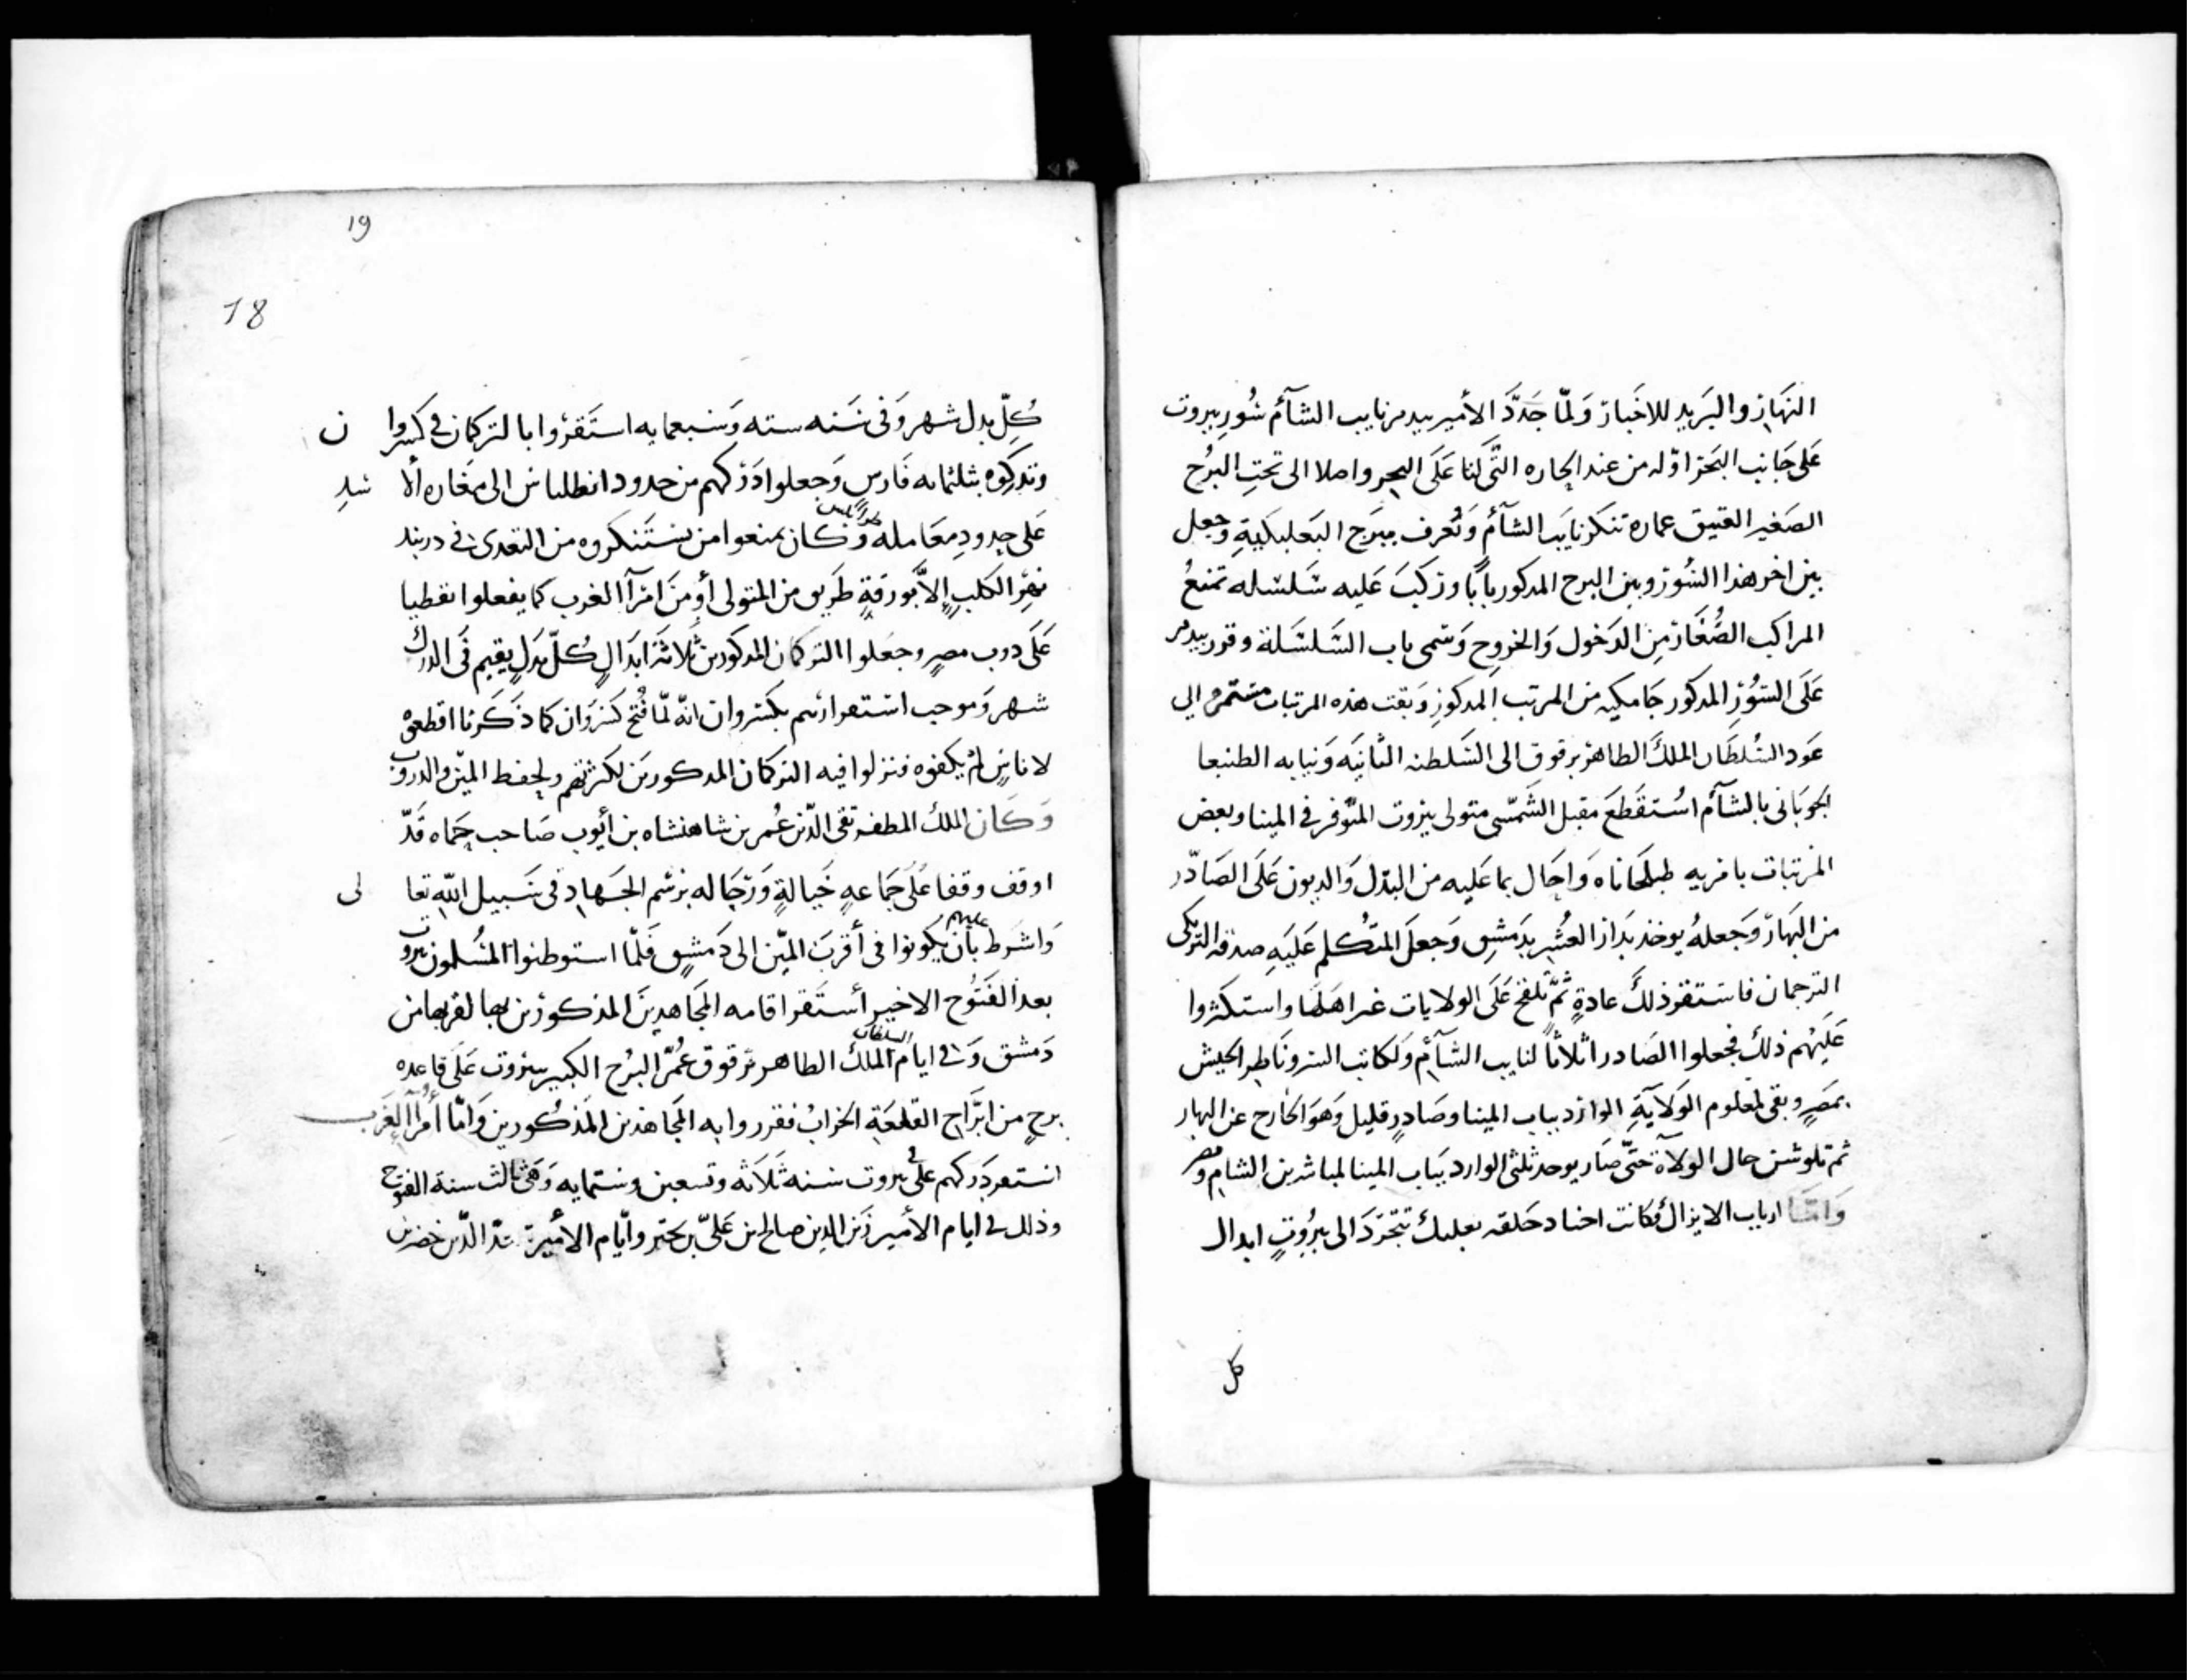 النهار والبريد للاخبار وَلمّا جَدَّدَ الأمير بيدمر نايب الشآم سُور بيروت
عَلى جَانِب البَحر اوّله من عند الحاره التّى لنا عَلَى البحر واصلا الى تحتِ البُرج
الصَغير العتيق عمارة تنكز نايب الشآم وَتُعرف ببرَج البَعلبكيةِ وجعل
بين اخر هذا السُور وبين البرج المدكور بابًا وركبَ عَليه سَلسَله تمنعُ
المراكب الصُّغَار مِن الدَخول وَالخروج وَسَمى باب السَلسَلة وقرر بيدمر
عَلَى السّوُر المدكور جَامكيه من المرتب المدكورِ وَبقت هذه المرتبات مستمره الي
عَود السُلطَان الملكَ الطاهر برقوق الى السَلطنه الثانيَه وَنيابه الطنبعا
الجوبَانى بالشآم اسُتقَطعَ مقبل الشَمسّى متولى بيروت المتّوفر في المينا وبعض
المرتبات بامريه طبلخاناه وَاحَال بما عَليه من البَدل وَالديون عَلَى الصَادّر
من البَهارّ وَجَعلهُ يوخذ بَدار العُشر بدَمشقِ وَجعلَ المتُكلم عَليَهِ صدقه التركى
الترجمان فاسَتقر ذلكَ عادةٍ ثمّ تلفح عَلَى الولايات غير اهَلها واستكثروا
عَليَهُم ذلك فجعلوا الصَادر اثلاثاً لنايب الشآم وَلكاتب السر ونَاطِر الجيش
بمَصرٍ وبقى لمعلوم الوَلايَةِ الوارد بباب المينا وصَادرٍ قليل وَهوَ الخارج عن البهار
ثم تلوشت حال الولآة حَتّى صَار يوخد ثلثى الوارد ببَاب المينا لمباشرين الشام ومصر
وَامّا ارباب الابزال فكانت اجناد حَلقه بعلبك تتجَرَدَ الى بيرُوتٍ ابدال
كل
19
18
كُلّ بدل شهر وَفى سَنه سته وَسَبعمايه استَقرُوا با لتركمان في كسروا ن
وتدركوه بثلثمايه فَارسٍ وَجعلوا دَرَكهم من حدود انطلياس الى مغَاره الا سد
عَلى حدودِ معَامله طرابلس وَكان يمنعوا من يستَنكروه من التعدى في دربند
نهر الكلبِ إلاَّ بورَقةٍ طَريق من المتولى أو مِن امَرآ الغرب كما يفعلوا بقطيا
عَلَى دوب مصرٍ وجعَلوا التركمان المدكورين ثَلاثَة ابَدالٍ كُلّ بدَلٍ يقيم فَى الدرك
شهر وَموجب استقرارَهم بكسروان انّه لمّا فُتح كسَروَان كما ذَكَرنا اقطعوه
لاناسٍ لم يكفوه فنزلوا فيه التركمان المدكورين لكثرتهم ولحفط المين والدروب
وَكَان الملك المطفر تقى الدّين عُمر بن شاهنشاه بن أيّوب صَاحب حمَاه قَدّ
اوقف وقفا عَلَى جَماعهٍ خَيالةٍ وَرَجَاله برسَم الجَهاد فى سَبيل اللّه تعا لى
وَاشَرط عليهم بأن يكونوا فى أقربَ المين الى دَمشقٍ فَلمّا استوطنوا المسُلمون بيروت
بعد الفَتُوح الاخير أستَقر اقامه المجاهدِينَ المذكورين بها لقربها من
دَمشق وَفي ايام السلطان الملكُ الطاهر برقوق عُمُّرَ البُرج الكبير ببيروت عَلَى قاعده
برجٍ من ابرَاج القلعَةِ الخرابُ فقرروا به المجاهدين المَذكُورين وَامّا أمُرآ الغرَب
استقر دَركهم علَى بيروت سَنه ثَلاَثَه وتسعين وستمايه وَهَى ثالث سنة الفتوح
وذلك في ايام الأمير زَين الدين صالح بن عَلىّ بن بحتر وايّام الأمير سَعد الدّين خضر بن